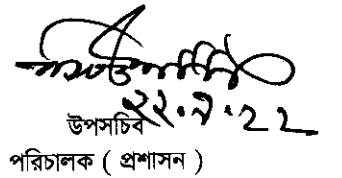 ২২.৭.২২
উপসচিব
পরিচালক ( প্রশাসন )